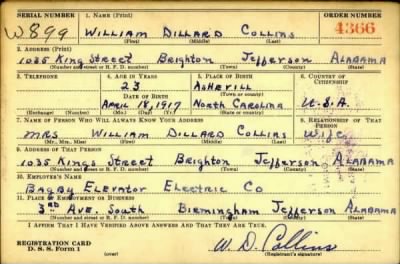 SERIAL NUMBER 1. NAME (Print) ORDER NUMBER
W899 WILLIAM DILLARD COLLINS 4366
(First) (Middle) (Last)
2. ADDRESS (Print)
1035 KING STREET BRIGHTON JEFFERSON ALABAMA
(Number and street or R. F. D. number) (Town) (County) (State)
3. TELEPHONE 4. AGE IN YEARS 5. PLACE OF BIRTH 6. COUNTRY OF CITIZENSHIP
23 ASHEVILL
(Town or county)
DATE OF BIRTH
APRIL 18, 1917 NORTH CAROLINA U.S.A.
(Exchange) (Number) (Mo.) (Day) (Yr.) (State or country)
7. NAME OF PERSON WHO WILL ALWAYS KNOW YOUR ADDRESS 8. RELATIONSHIP OF THAT PERSON
MRS WILLIAM DILLARD COLLINS WIFE
(Mr., Mrs., Miss) (First) (Middle) (Last)
9. ADDRESS OF THAT PERSON
1035 KINGS STREET BRIGHTON JEFFERSON ALABAMA
(Number and street or R. F. D. number) (Town) (County) (State)
10. EMPLOYER'S NAME
BAGBY ELEVATOR ELECTRIC CO
11. PLACE OF EMPLOYMENT OR BUSINESS
3RD AVE. SOUTH BIRMINGHAM JEFFERSON ALABAMA
(Number and street or R. F. D. number) (Town) (County) (State)
I AFFIRM THAT I HAVE VERIFIED ABOVE ANSWERS AND THAT THEY ARE TRUE.
REGISTRATION CARD
D. S. S. Form 1
W. D. Collins
(Registrant's signature)